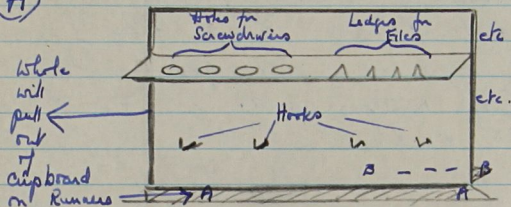 A)
Holes for
Screwdrivers
Ledges for
Files
etc
Whole
will
pull
out
of
cupboard
on Runners
etc.
Hooks
B
B
A
A